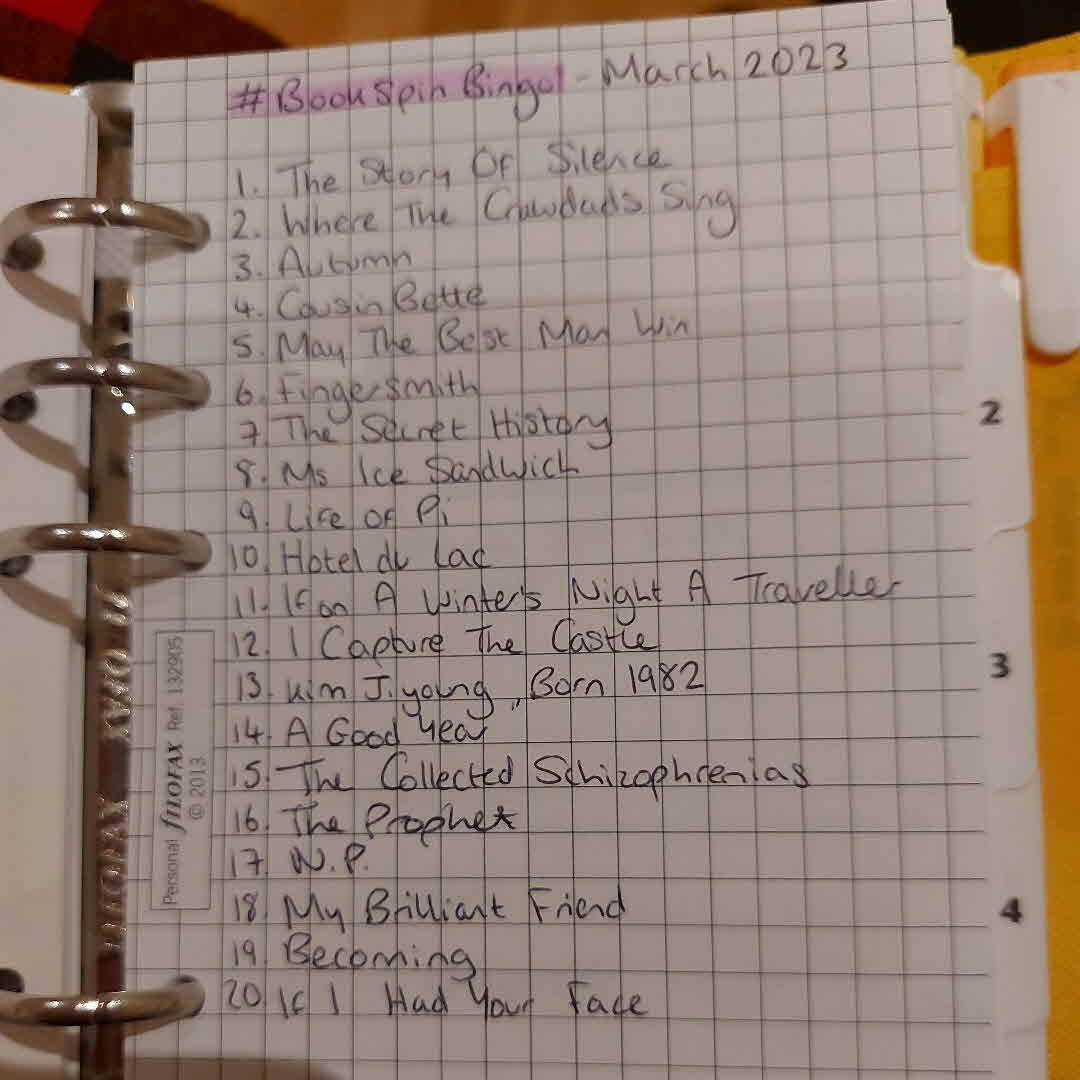 #BookSpinBingo! - March 2023
1. The Story Of Silence
2. Where The Crawdads Sing
3. Autumn
4. Cousin Bette
5. May The Best Man Win
6. Fingersmith
7. The Secret History
8. Ms Ice Sandwich
9. Life of Pi
10. Hotel du Lac
11. If on A Winter's Night A Traveller
12. I Capture The Castle
13. Kim Jiyoung, Born 1982
14. A Good Year
15. The Collected Schizophrenias
16. The Prophet
17. N.P.
18. My Brilliant Friend
19. Becoming
20. If I Had Your Face
Personal filofax Ref. 132905
© 2013
2
3
4